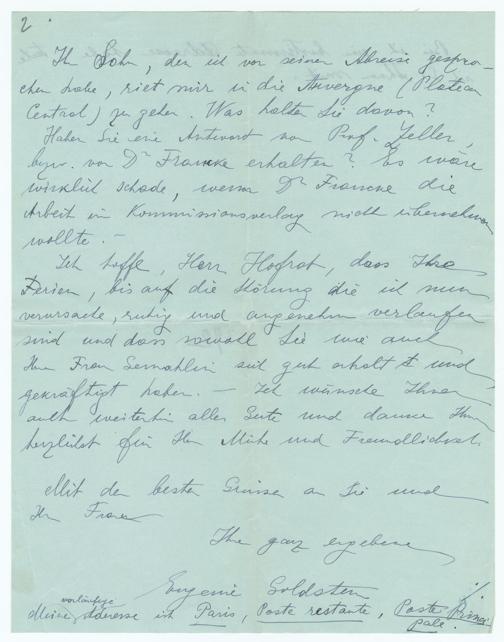 2.
Ihr Sohn, den ich vor seiner Abreise gespro-
chen habe, riet mir in die Auvergne (Plateau
Central) zu gehen. Was halten Sie davon?
Haben Sie eine Antwort von Prof. Zeller,
bzw. von Dr Francke erhalten? Es wäre
wirklich schade, wenn Dr Francke die
Arbeit im Kommissionsverlag nicht übernehmen
wollte. –
Ich hoffe, Herr Hofrat, dass Ihre
Ferien, bis auf die Störung die ich nun
verursache, ruhig und angenehm verlaufen
sind und dass sowohl Sie wie auch
Ihre Frau Gemahlin sich gut erholt und
gekräftigt haben. – Ich wünsche Ihnen
auch weiterhin alles Gute und danke Ihnen
herzlichst für Ihre Mühe und Freundlichkeit.
Mit den besten Grüssen an Sie und
Ihre Frau
Ihre ganz ergebene
Eugenie Goldstern
vorläufige
Meine Adresse ist Paris, Poste restante, Poste Princi
pale.